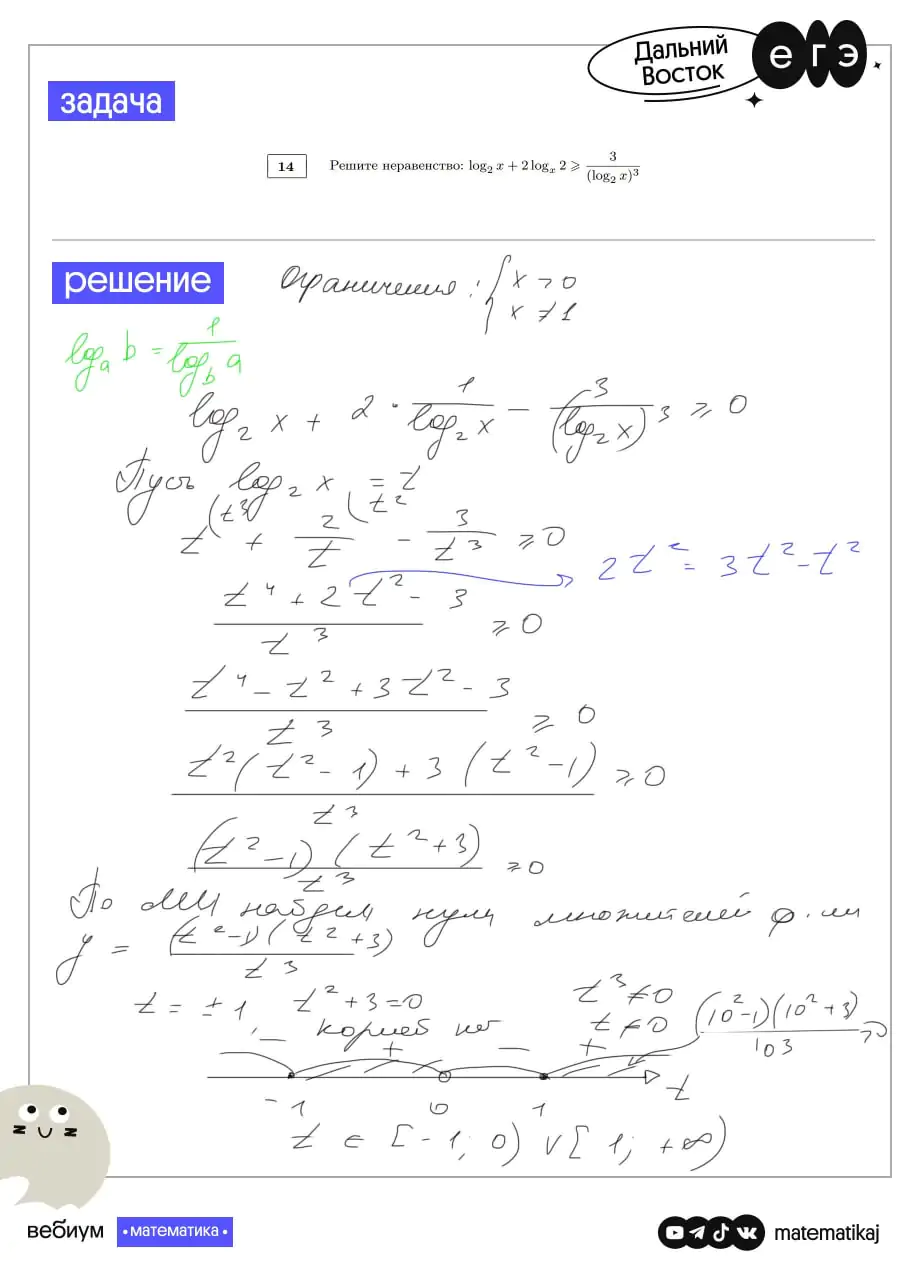 Дальний
Восток
егэ
задача
14 Решите неравенство: log₂ x + 2 logₓ 2 ⩾ 3/(log₂ x)³
решение
Ограничения: { x > 0
x ≠ 1
logₐ b = 1/(log_b a)
log₂ x + 2 · 1/(log₂ x) − 3/(log₂ x)³ ⩾ 0
Пусть log₂ x = t
t^(t³ + 2/t^(t² − 3/t³ ⩾ 0
2t² = 3t² − t²
(t⁴ + 2t² − 3)/t³ ⩾ 0
(t⁴ − t² + 3t² − 3)/t³ ⩾ 0
(t²(t² − 1) + 3(t² − 1))/t³ ⩾ 0
((t² − 1)(t² + 3))/t³ ⩾ 0
По МИ найдем нули множителей ф-ии
y = ((t² − 1)(t² + 3))/t³
t = ± 1 t² + 3 = 0 t³ ≠ 0
корней нет t ≠ 0
((10² − 1)(10² + 3))/10³ ⩾ 0
− + − +
−1 0 1 t
t ∈ [−1; 0) ∪ [1; +∞)
вебиум • математика • matematikaj